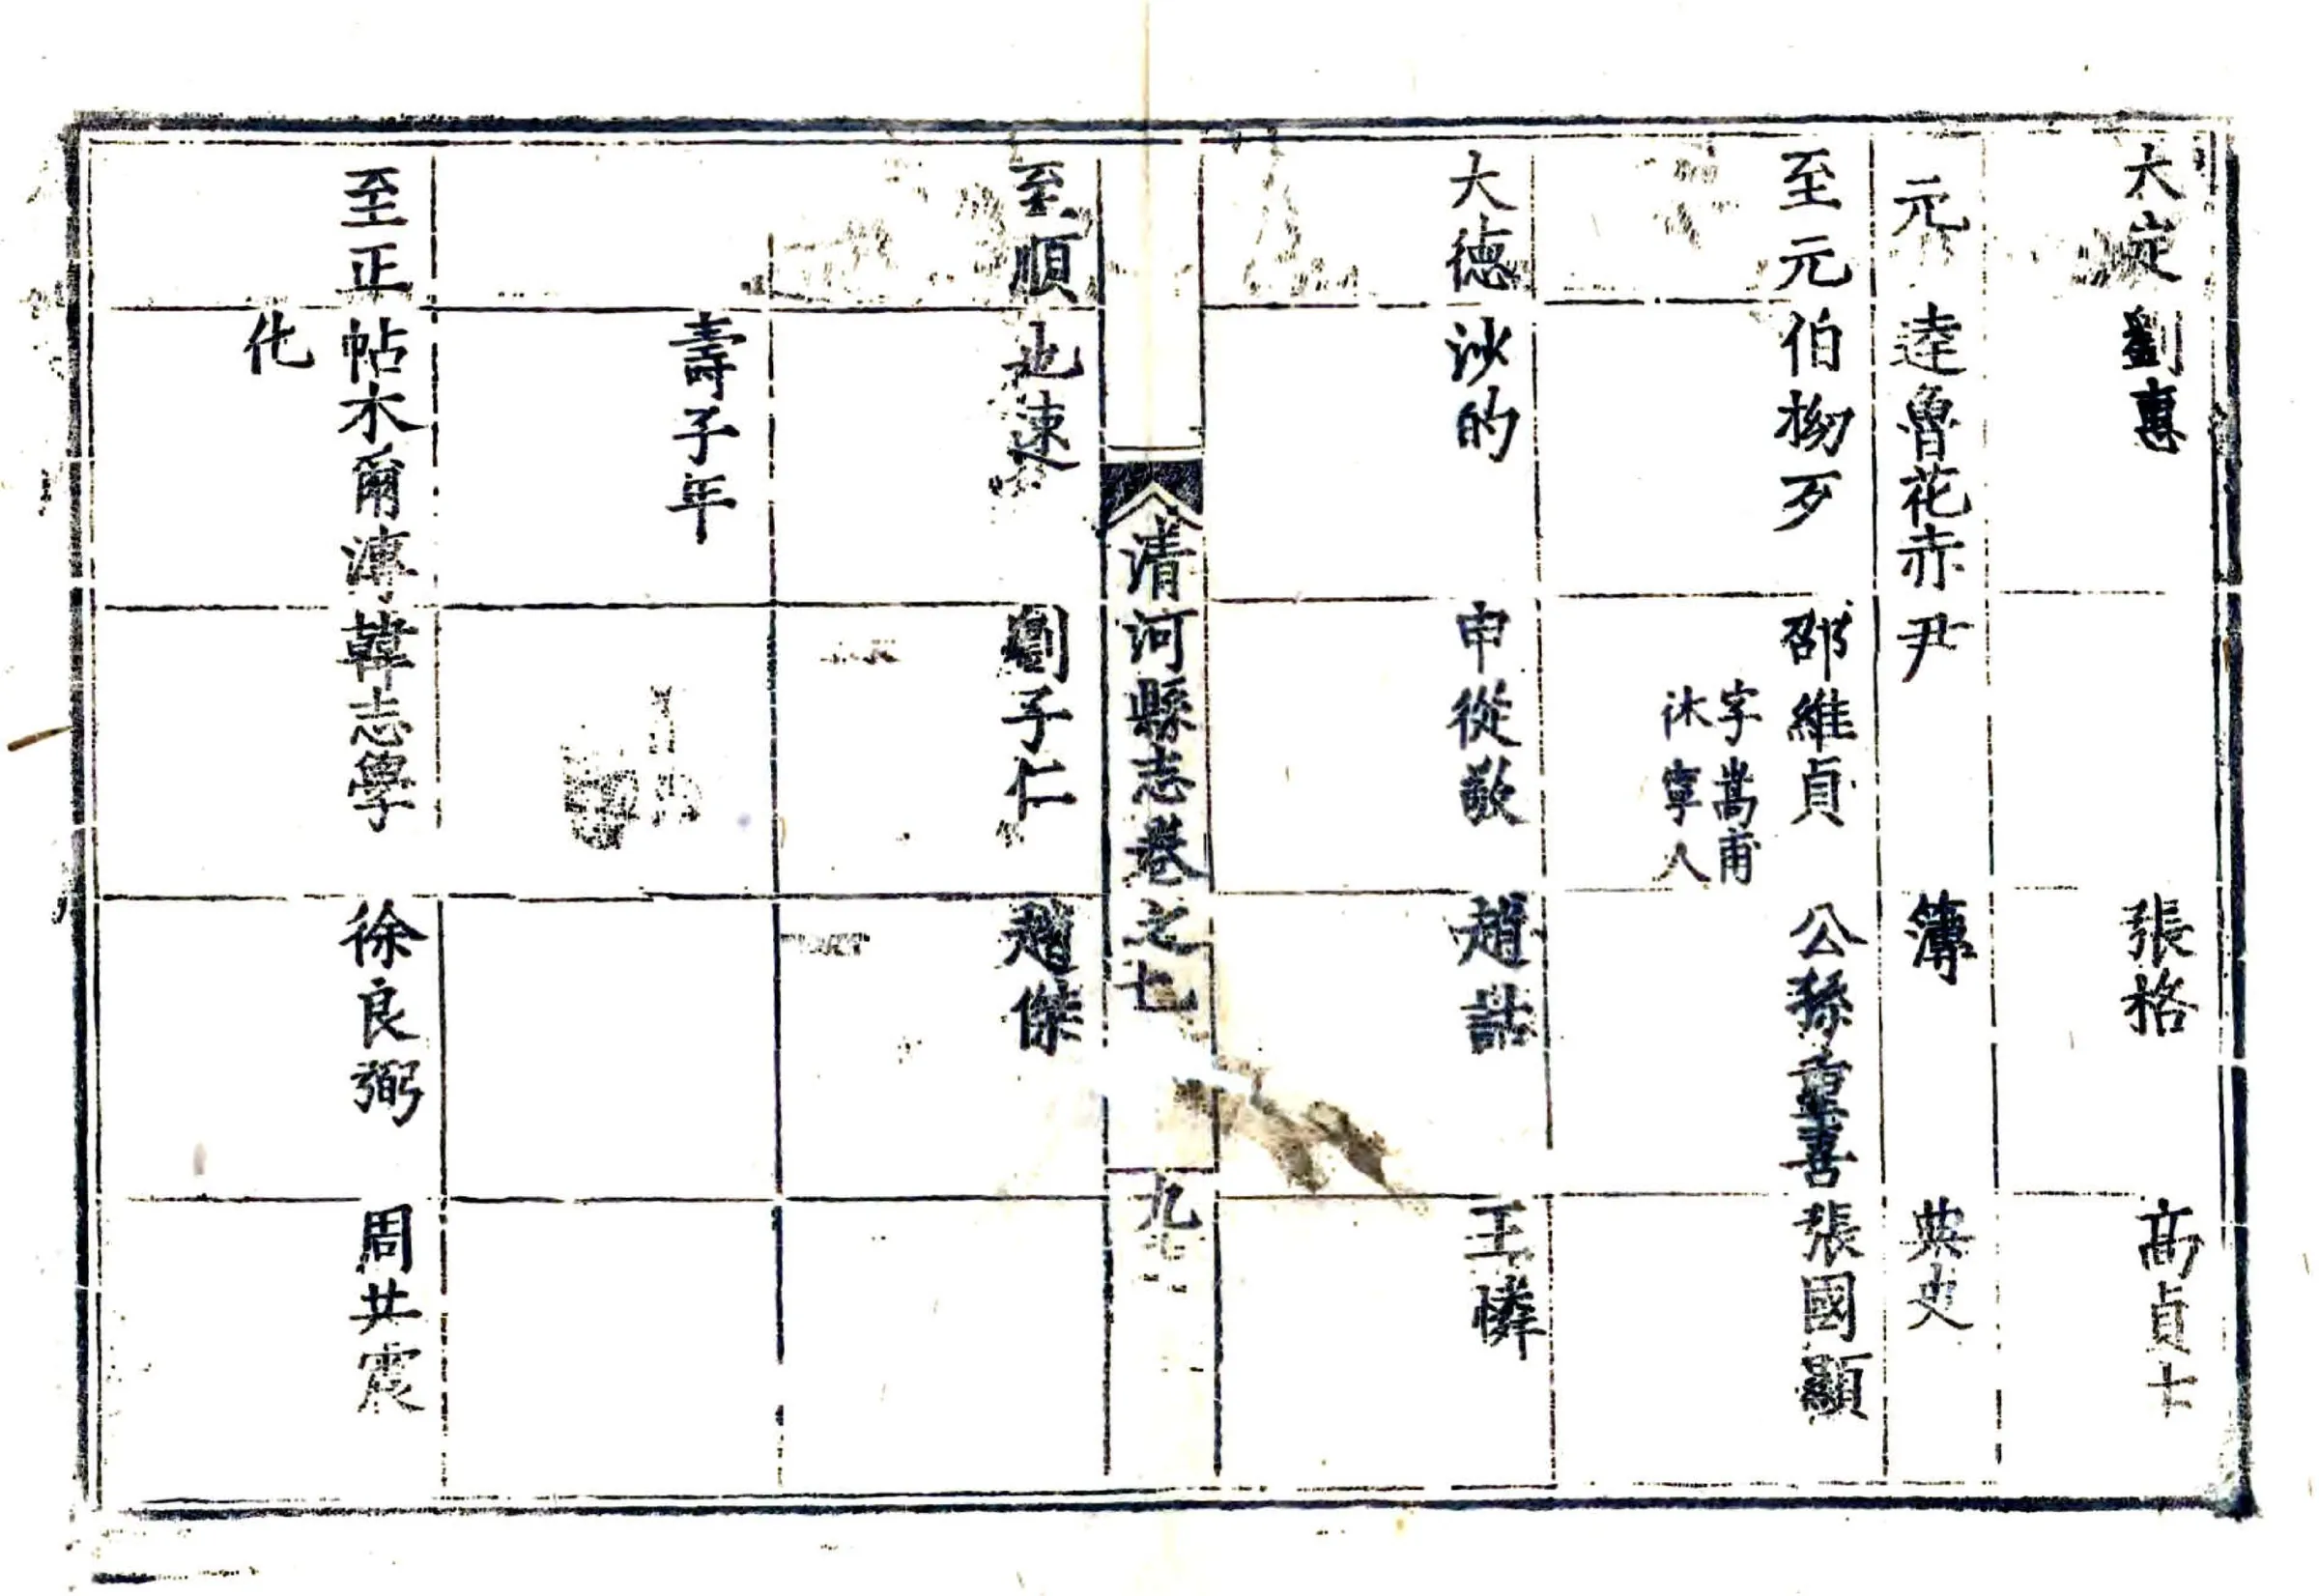 大定 劉真 張格 高貞士
元 逹魯花赤 尹 簿 典史
至元 伯㧕歹 邵維貞 公孫重喜 張國顯
字嵩甫
沐寧人
大德 沙的 申從敬 趙誌 王憐
清河縣志卷之七 九
至順 也速 劉子仁 趙傑
壽子年
至正 帖木爾溥 韓志學 徐良弼 周共震
化